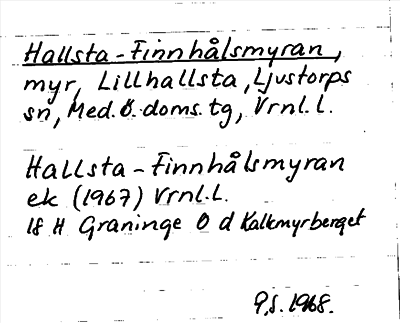 Hallsta-Finnhålsmyran,
myr, Lillhallsta, Ljustorps
sn, Med.Ö.doms.tg, Vrnl.L.
Hallsta-Finnhålsmyran
ek (1967) Vrnl.L.
18 H Graninge O d Kalkmyrberget
P.S. 1968.